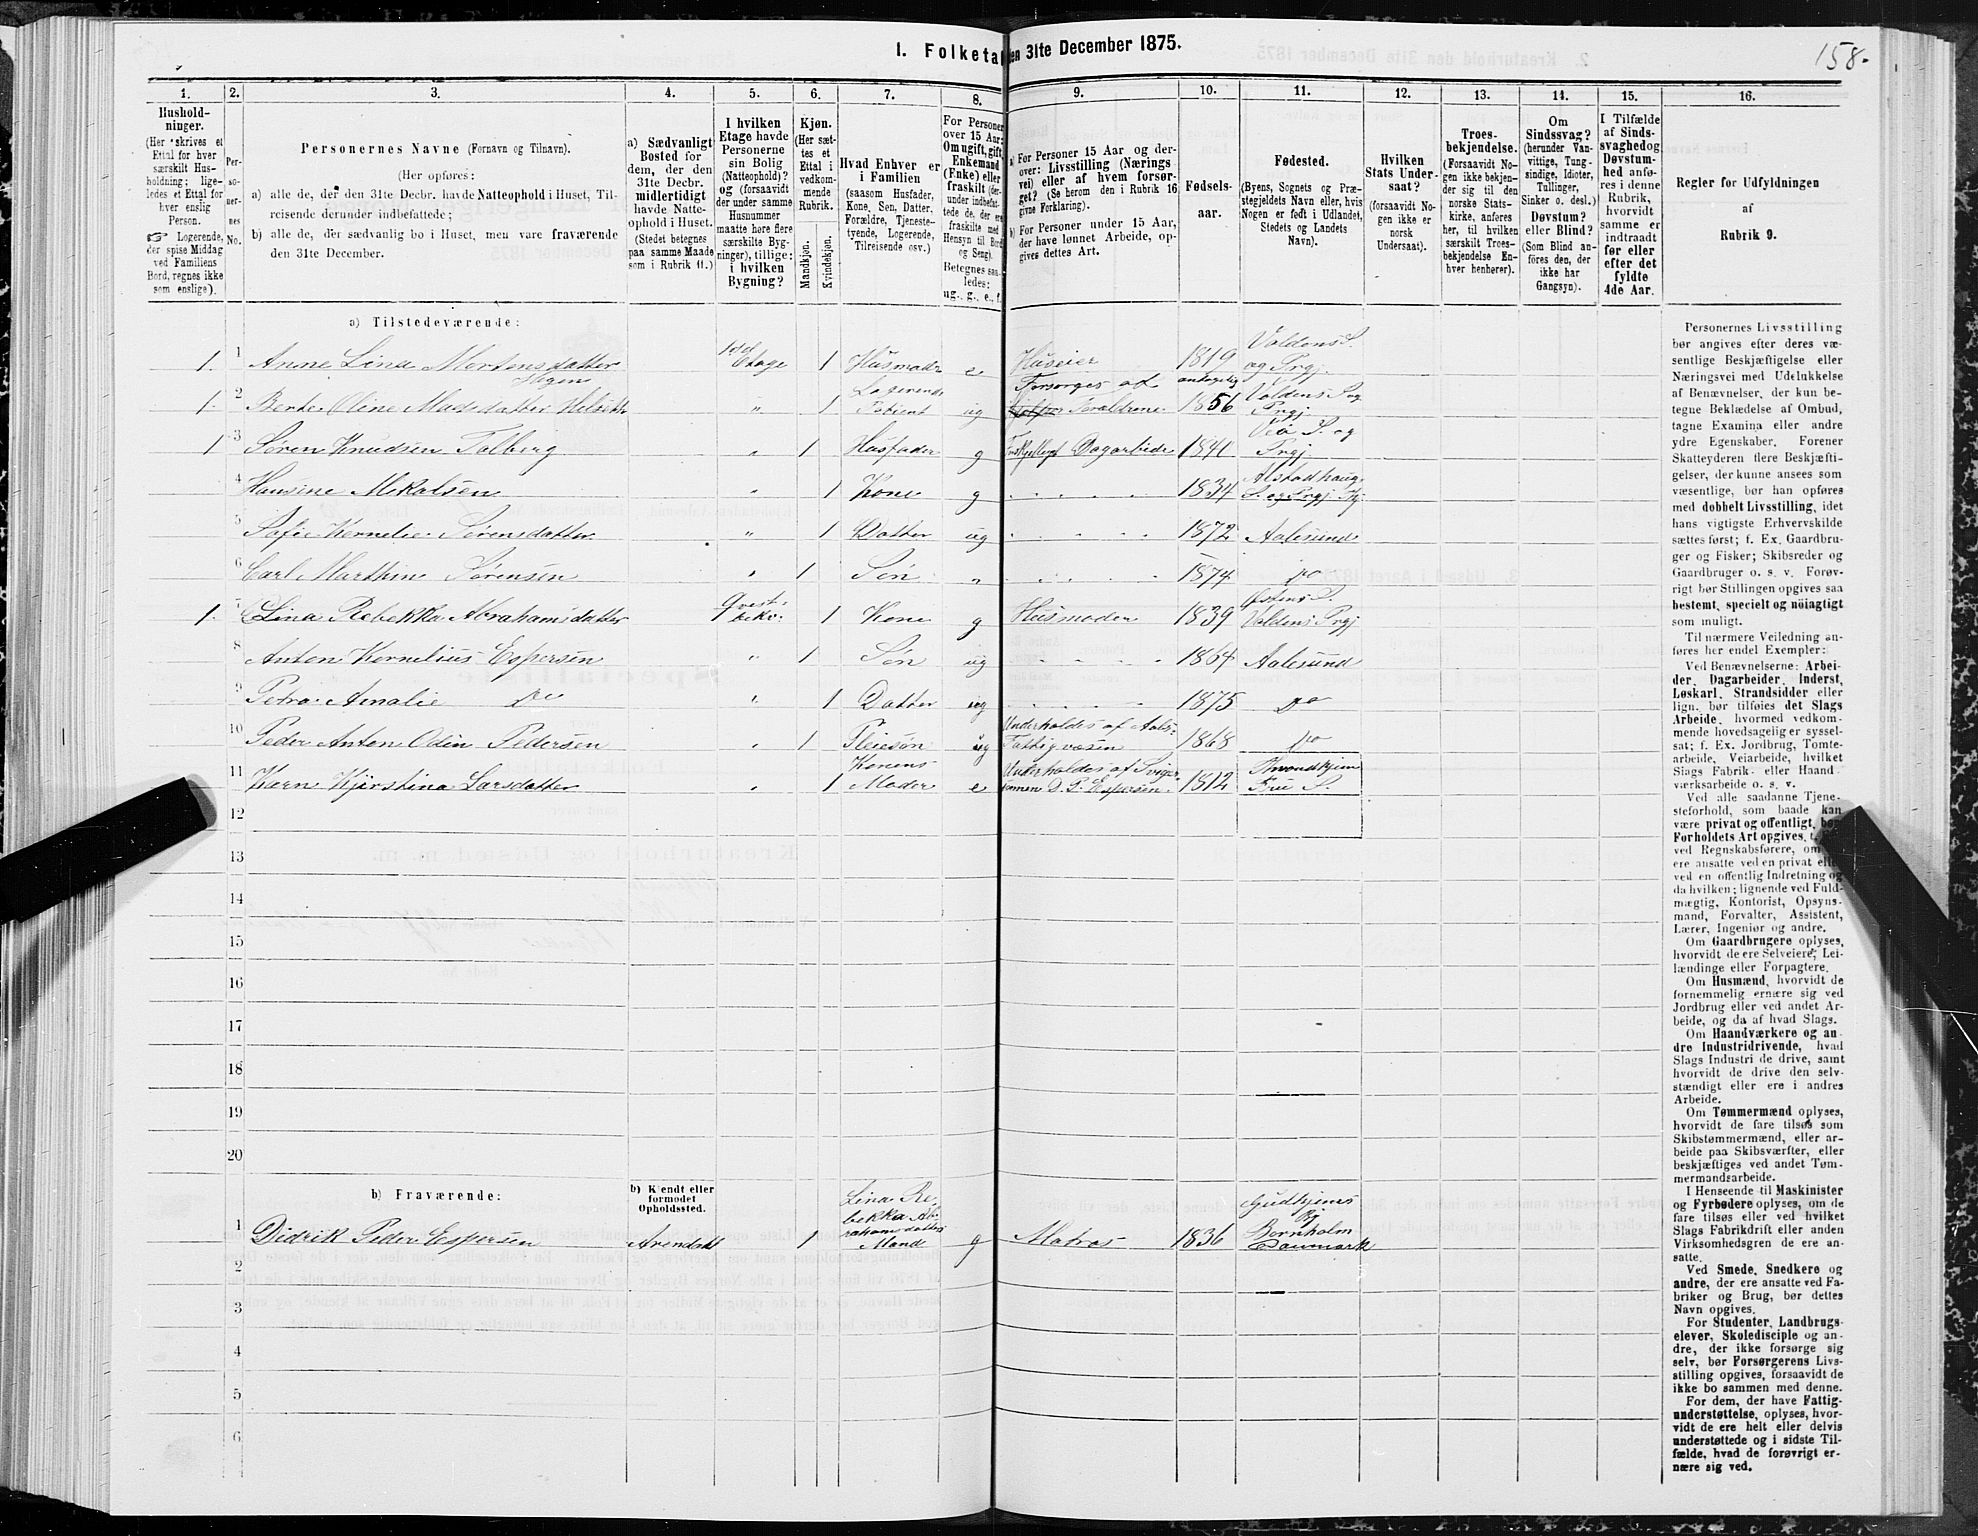 I. Folketal den 31te December 1875.
158.
1. 2. 3. 4. 5. 6. 7. 8. 9. 10. 11. 12. 13. 14. 15. 16.
Hushold-
ninger.
(Her skrives et
Ettal for hver
særskilt Hus-
holdning; lige-
ledes et Ettal for
hver enslig
Person.
☞ Logerende,
der spise Middag
ved Familiens
Bord, regnes ikke
som enslige).
Per-
so-
ner-
nes
No.
Personernes Navne (Fornavn og Tilnavn).
(Her opføres:
a) alle de, der den 31te Decbr. havde Natteophold i Huset, Til-
reisende derunder indbefattede;
b) alle de, der sædvanlig bo i Huset, men vare fraværende
den 31te December.
a) Sædvanligt
Bosted for
dem, der den
31te Decbr.
midlertidigt
havde Natte-
ophold i Huset.
(Stedet betegnes
paa samme Maade
som i Rubrik 11.)
I hvilken
Etage havde
Personerne
sin Bolig
(Natteophold)?
og (forsaavidt
der under samme
Husnummer
maatte høre flere
særskilte Byg-
ninger), tillige:
i hvilken
Bygning?
Kjøn.
(Her sæt-
tes et
Ettal i
vedkom-
mende
Rubrik.
Mandkjøn.
Kvindekjøn.
Hvad Enhver er
i Familien
(saasom Husfader,
Kone, Søn, Datter,
Forældre, Tjeneste-
tyende, Logerende,
Tilreisende osv.)
For Personer
over 15 Aar:
Om ugift, gift,
Enkemand
(Enke) eller
fraskilt (der-
under indbefat-
tede de, der ere
fraskilte med
Hensyn til Bord
og Seng).
Betegnes saa-
ledes:
ug., g., e., f.
a) For Personer 15 Aar og der-
over: Livsstilling (Nærings-
vei) eller af hvem forsør-
get? (Se herom den i Rubrik 16
givne Forklaring).
b) For Personer under 15 Aar,
der have lønnet Arbeide, op-
gives dettes Art.
Fødsels-
aar.
Fødested.
(Byens, Sognets og Præ-
stegjeldets Navn eller, hvis
Nogen er født i Udlandet,
Stedets og Landets
Navn).
Hvilken
Stats Under-
saat?
(forsaavidt No-
gen ikke er
norsk
Undersaat).
Troes-
bekjendelse.
(Forsaavidt No-
gen ikke bekjen-
der sig til den
norske Stats-
kirke, anføres
her, til hvilken
særskilt Troes-
bekjendelse En-
hver henhører).
Om
Sindssvag?
(herunder Van-
vittige, Tung-
sindige, Idioter,
Tullinger,
Sinker o. desl.)
Døvstum?
eller Blind?
(Som Blind an-
føres den, der
ikke har
Gangsyn).
I Tilfælde
af Sinds-
svaghed og
Døvstum-
hed anfø-
res i denne
Rubrik,
hvorvidt
samme er
indtraadt
før eller
efter det
fyldte
4de Aar.
Regler for Udfyldningen
af
Rubrik 9.
a) Tilstedeværende:
1. 1 Anne Lina Mortensdatter 1ste Etage 1 Husmoder e Huseier 1819 Voldens S. og Prgj.
1. 2 Berte Oline Madsdatter " 1 Logerende Patient ug Forsørges af Forældrene antagelig 1856 Voldens S og Prgj.
1 3 Søren Knudsen Tolberg " 1 Husfader g Dagarbeide 1841 S. og Prgj
4 Hansine Mikalsen " 1 Kone g 1834 Alstadhaug S. og Prgj
5 Sofie Kornelie Sørensdatter " 1 Datter ug 1872 Aalesund
6 Carl Marthin Sørensen " 1 Søn " 1874 do
1. 7 Lina Rebekka Abrahamsdatter Qvist- 1 Kone g Husmoder 1839 Østens S. Voldens Prgj
8 Anton Kornelius Espersen " 1 Søn ug 1864 Aalesund
9 Petra Amalie do " 1 Datter ug 1875 do
10 Peder Anton Odin Pedersen " 1 Pleiesøn ug Underholdes af Aals. Fattigvæsen 1868 do
11 Karn Kjirstina Larsdatter " 1 Konens Moder e Underholdes af Sviger- sønnen D. P. Espersen. 1812 Throndhjem Frue S.
12
13
14
15
16
17
18
19
20
b) Fraværende:
b) Kjendt eller
formodet
Opholdssted.
1 Didrik Peder Espersen Arendal 1 Lina Re- bekka Ab- rahamsdatters Mand g Matros 1836 Gudhjems By Bornholm Danmark
2
3
4
5
6
Personernes Livsstilling
bør angives efter deres væ-
sentlige Beskjæftigelse eller
Næringsvei med Udelukkelse
af Benævnelser, der kun be-
tegne Beklædelse af Ombud,
tagne Examina eller andre
ydre Egenskaber. Forener
Skatteyderen flere Beskjæfti-
gelser, der kunne ansees som
væsentlige, bør han opføres
med dobbelt Livsstilling, idet
hans vigtigste Erhvervskilde
sættes først; f. Ex. Gaardbru-
ger og Fisker; Skibsreder og
Gaardbruger o. s. v. Forøv-
rigt bør Stillingen opgives saa
bestemt, specielt og nøiagtigt
som muligt.
Til nærmere Veiledning an-
føres her endel Exempler:
Ved Benævnelserne: Arbei-
der, Dagarbeider, Inderst,
Løskarl, Strandsidder eller
lign. bør tilføies det Slags
Arbeide, hvormed vedkom-
mende hovedsagelig er syssel-
sat; f. Ex. Jordbrug, Tomte-
arbeide, Veiarbeide, hvilket
Slags Fabrik- eller Haand
værksarbeide o. s. v.
Ved alle saadanne Tjene-
steforhold, som baade kan
være privat og offentligt, bør
Forholdets Art opgives, t. Ex.
ved Regnskabsførere, om de
ere ansatte ved en privat eller
ved en offentlig Indretning og
da hvilken; lignende ved Fuld-
mægtig, Kontorist, Opsyns-
mand, Forvalter, Assistent,
Lærer, Ingeniør og andre.
Om Gaardbrugere oplyses,
hvorvidt de ere Selveiere, Lei-
lændinge eller Forpagtere.
Om Husmænd, hvorvidt de
fornemmelig ernære sig ved
Jordbrug eller ved andet Ar-
beide, og da af hvad Slags.
Om Haandværkere og an-
dre Industridrivende, hvad
Slags Industri de drive, samt
hvorvidt de drive den selv-
stændigt eller ere i andres
Arbeide.
Om Tømmermænd oplyses,
hvorvidt de fare tilsøs som
Skibstømmermænd, eller ar-
beide paa Skibsværfter, eller
beskjæftiges ved andet Tøm-
mermandsarbeide.
I Henseende til Maskinister
og Fyrbødere oplyses, om de
fare tilsøs eller ved hvilket
Slags Fabrikdrift eller anden
Virksomhedsgren de ere an-
satte.
Ved Smede, Snedkere og
andre, der ere ansatte ved Fa-
briker og Brug, bør dettes
Navn opgives.
For Studenter, Landbrugs-
elever, Skoledisciple og an-
dre, der ikke forsørge sig
selv, bør Forsørgerens Livs-
stilling opgives, forsaavidt de
ikke bo sammen med denne.
For dem, der have Fattig-
understøttelse, oplyses, hvor-
vidt de ere helt eller delvis
understøttede og i sidste Til-
fælde, hvad de forøvrigt er-
nære sig ved.